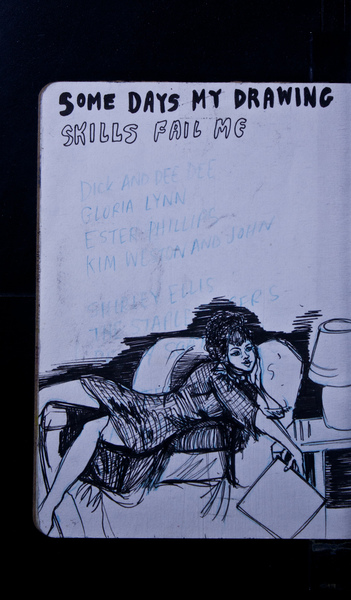 SOME DAYS MY DRAWING
SKILLS FAIL ME
DICK AND DEE DEE
GLORIA LYNN
ESTER PHILLIPS
KIM WESTON AND JOHN
ELLIS